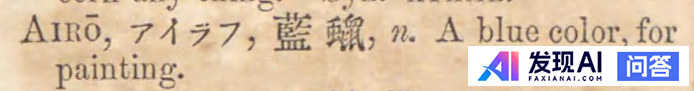 AIRŌ, アイラフ, 藍蠟, n. A blue color, for
painting.
发现AI
FAXIANAI.COM
问答